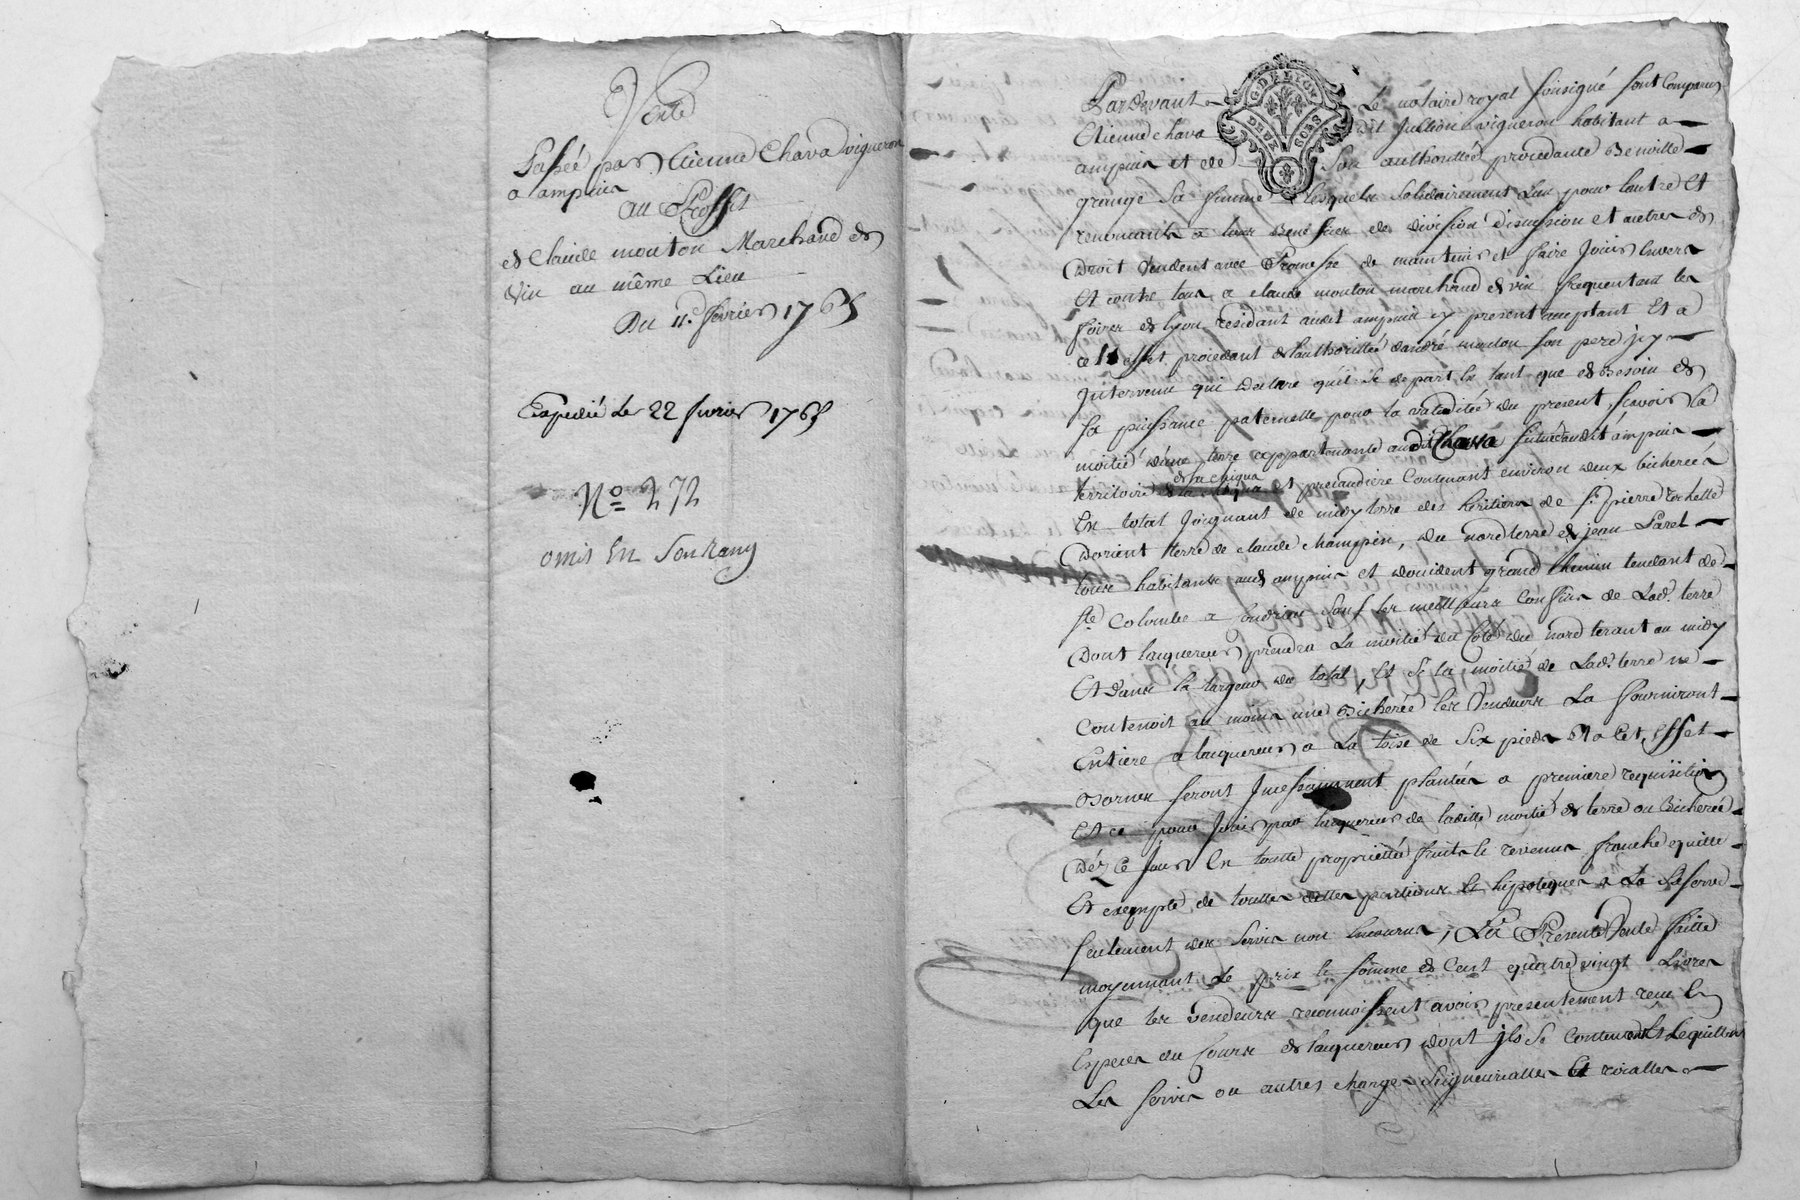 Vente
Passée par Etienne Chava vigneron
a ampuis
au Proffit
de Claude mouton Marchand de
Vin au même Lieu
Du 11e. fevrier 1765
Expedié le 22 fevrier 1765
No. 272
omis En Son Rang
G. DE LYON
DEUX SOLS
Pardevant Le notaire royal soussigné sont Comparus
Etienne chava dit Jullion vigneron habitant a
ampuis et de Son authorittée procedante Benoitte
grange Sa femme Lesquels Solidairement L'un pour Lautre Et
renonçants a tous Benefices de division discussion et autres de
Droit Vendent avec Promesse de maintenir et faire Jouir Envers
Et contre tous a claude mouton marchand de vin frequentant les
foires de lyon residant audit ampuis cy present acceptant Et a
cet effet procedant de l'authorittée d'andré mouton son pere icy
Intervenu qui declare qu'il Se depart En tant que de Besoin de
Sa puissance paternelle pour la validitée du present, scavoir la
moitié d'une terre appartenante audit Chava Scituée audit ampuis
territoire de la chiqua et precaudiere Contenant environ deux bicherées
En total Joignant de midy terre des heritiers de sr. pierre rochette
D'orient terre de claude champin, du nord terre de jean Paret
tous habitants aud. ampuis et d'occident grand chemin tendant de
Ste. Colombe a Condrieu Sauf les meilleurs Confins de Lad. terre
Dont lacquereur prendra La moitié du Coté du nord tirant au midy
Et dans la largeur du total, Et Si la moitié de Lad. terre ne
Contenoit au moins une Bicherée les Vendeurs La fourniront
Entiere a lacquereur a La toise de Six pieds Et a Cet Effet
Bornes seront Incessamment plantées a premiere requisition
Et ce pour Jouir par lacquereur de laditte moitié de terre ou Bicherée
Dés Ce Jour En toutte proprietée fruits Et revenus franche quitte
Et exempte de touttes dettes pentions Et hipoteques a La Reserve
seulement des Servis non Encourus, La Presente Vente faitte
moyennant Le prix Et somme de Cent quatre vingt Livres
que les vendeurs reconnoissent avoir presentement recu En
Especes du Cours de lacquereur dont ils Se Contentent Et Lequittent
Les servis ou autres charges Seigneurialles Et royalles